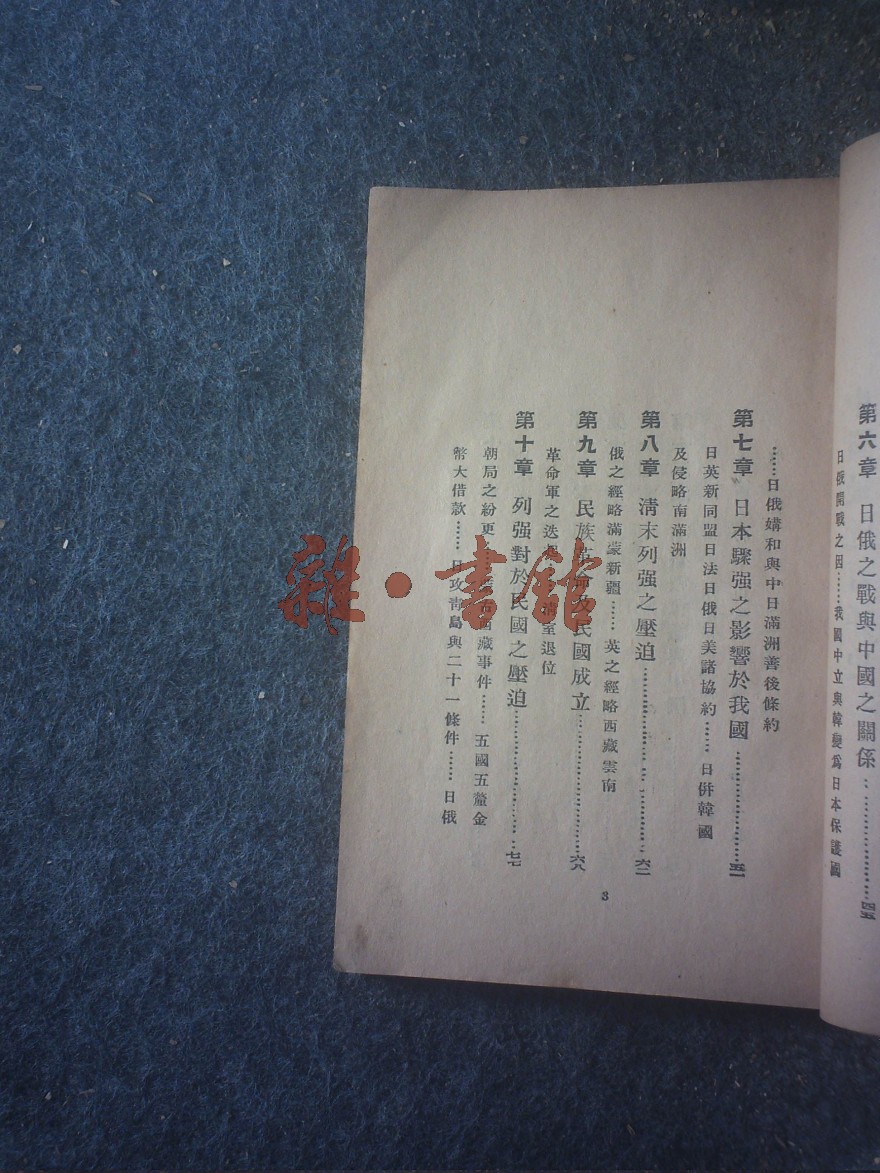 第六章 日俄之戰與中國之關係……四五
日俄開戰之因……我國中立與韓變爲日本保護國
……日俄媾和與中日滿洲善後條約
第七章 日本驟强之影響於我國……五一
日英新同盟日法日俄日美諸協約……日併韓國
及侵略南滿洲
第八章 淸末列强之壓迫……六二
俄之經略滿蒙新疆……英之經略西藏雲南
第九章 民族革命及民國成立……六八
革命軍之迭 室退位
第十章 列强對於民國之壓迫……七七
朝局之紛更 藏事件……五國五釐金
幣大借款……日攻靑島與二十一條件……日俄
3
雜·書館